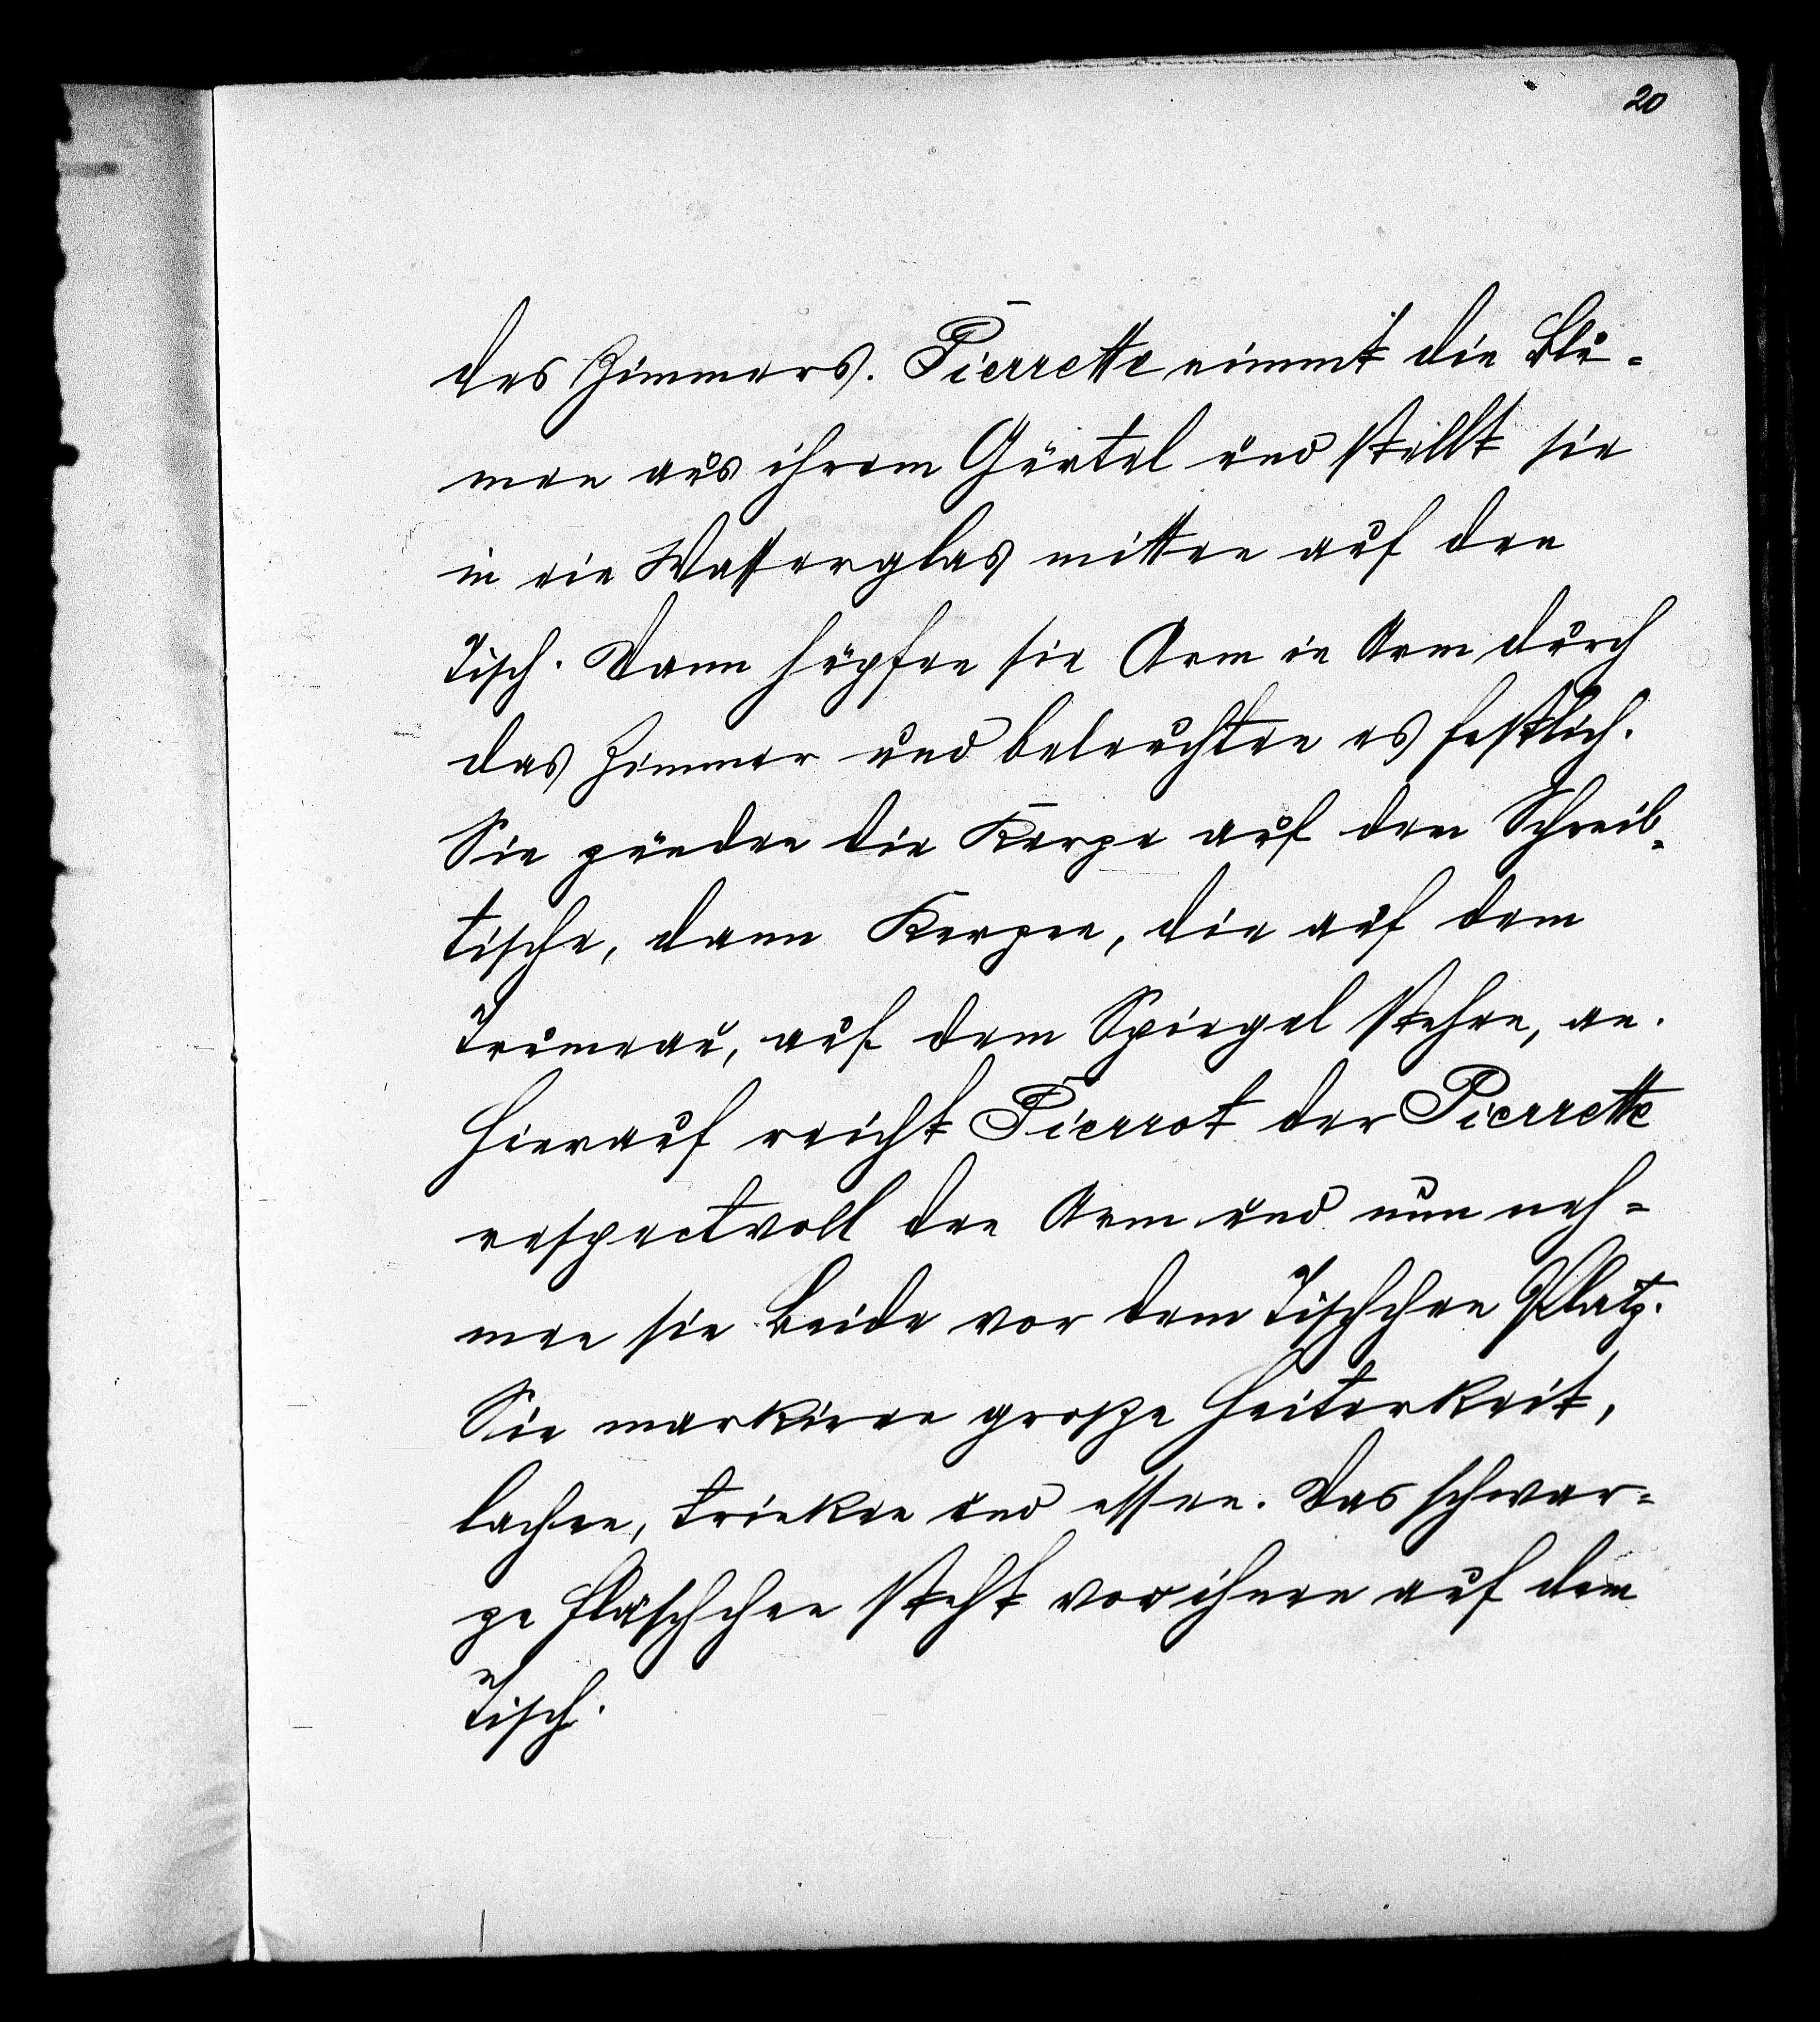 20
des Zimmers. Pierrette nimmt die Blu-
men aus ihrem Gürtel und stellt sie
in ein Wasserglas mitten auf den
Tisch. Dann hüpfen sie Arm in Arm durch
das Zimmer und beleuchten es festlich.
Sie zünden die Kerze auf dem Schreib-
tische, dann Kerzen, die auf dem
Trumeau, auf dem Spiegel stehen, an.
Hierauf reicht Pierrot der Pierrette
respectvoll den Arm und nun neh-
men sie Beide vor dem Tischchen Platz.
Sie markiren große Heiterkeit,
lachen, trinken und essen. Das schwar-
ze Fläschchen steht vor ihnen auf dem
Tisch.